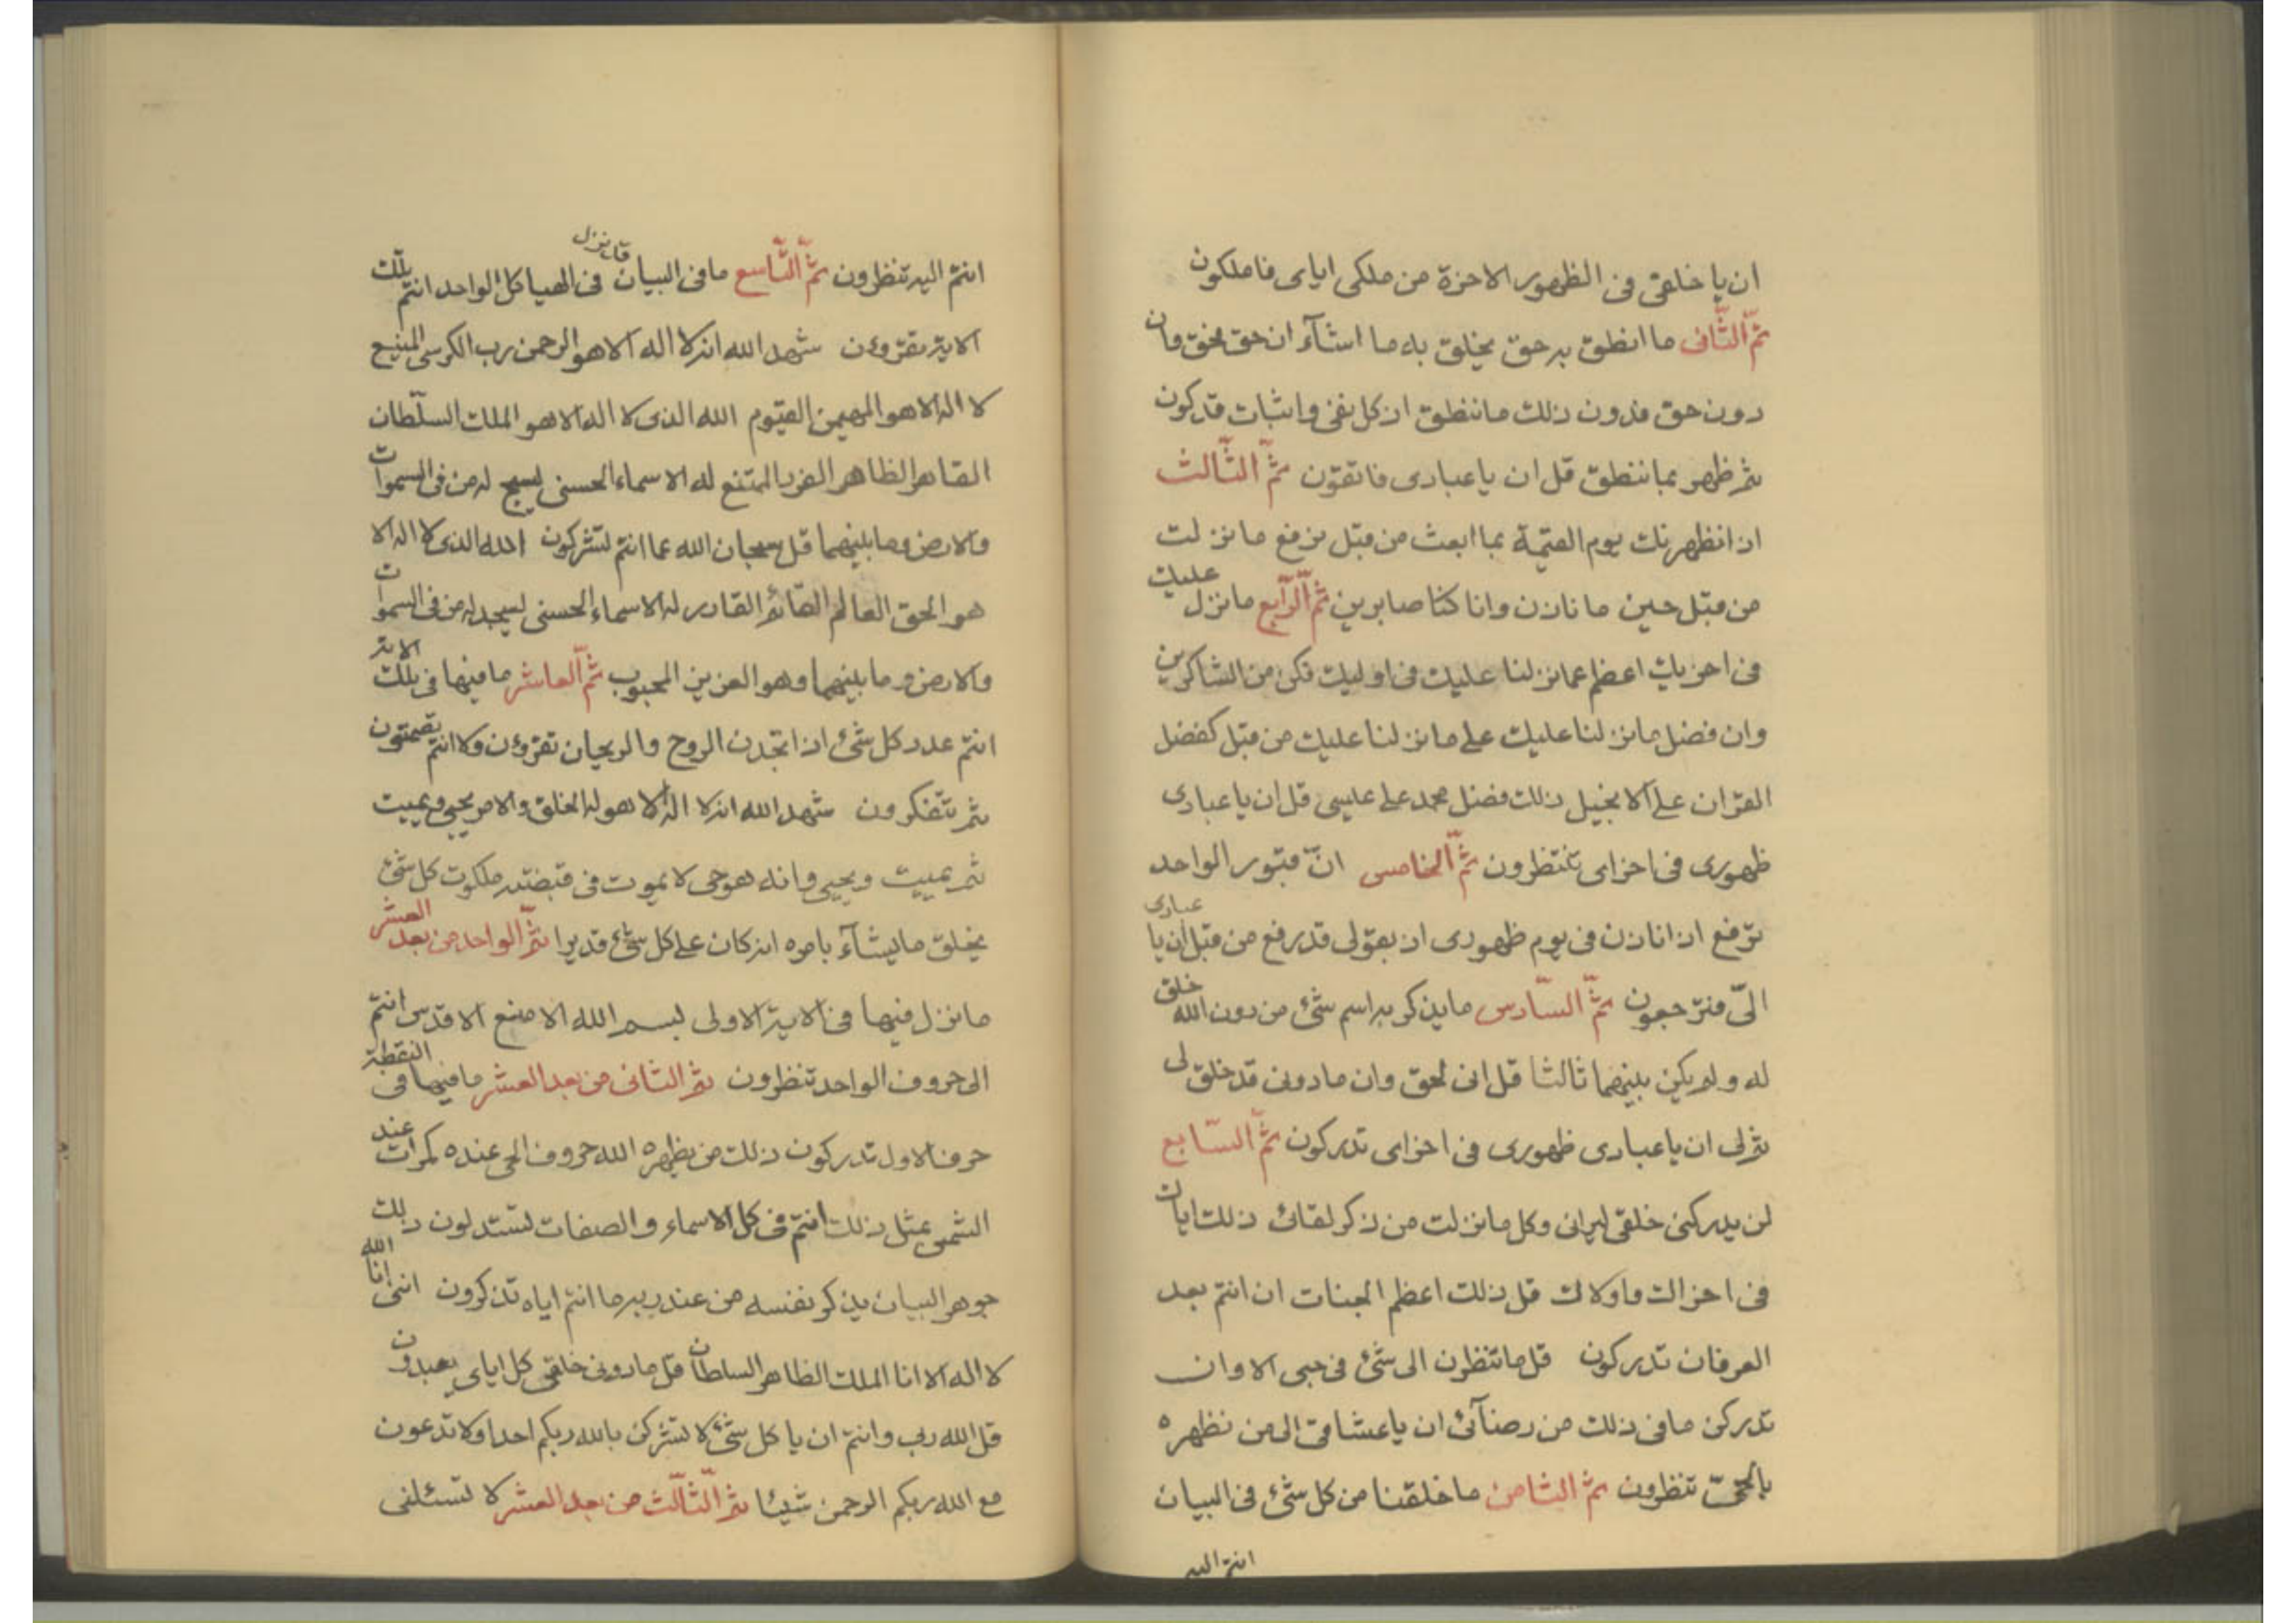 ان يا خلقى فى الظهور الاخرة من ملكى اياى فاملكون
ثم الثانى ما انطق به حق يخلق به ما اشآء ان حق فحق وان
دون حق فدون ذلك ما ننطق اذ كل نفى واثبات قد كون
ثم ظهر بما ننطق قل ان يا عبادى فاتقون ثم الثالث
اذ انظهرنك يوم القيمة بما ابعث من قبل نرفع ما نزلت
من قبل حين ما ناذن وانا كنا صابرين ثم الرابع ما نزل عليك
فى اخريك اعظم عما نزلنا عليك فى اوليك فكن من الشاكرين
وان فضل ما نزلنا عليك على ما نزلنا عليك من قبل كفضل
القران على الانجيل ذلك فضل محمد على عيسى قل ان يا عبادى
ظهورى فى اخراى تنتظرون ثم الخامس ان قبور الواحد
ترفع اذ اناذن فى يوم ظهورى اذ بقولى قد رفع من قبل ان يا عبادى
الىّ فترجعون ثم السادس ما يذكر به اسم شئ من دون الله خلق
له ولم يكن بينهما ثالثا قل انى لحق وان ما دونى قد خلق لى
ثم لى ان يا عبادى ظهورى فى اخراى تدركون ثم السابع
لن يدركنى خلقى ليرانى وكل ما نزلت من ذكر لقائى ذلك اياك
فى اخراك واولاك قل ذلك اعظم الجنات ان انتم بعد
العرفان تدركون قل ما تنظرن الى شئ فى حبى الا وان
تدركن ما فى ذلك من رضآئى ان يا عشاقى الى من نظهره
بالحق تنظرون ثم الثامن ما خلقنا من كل شئ فى البيان
انتم اليه
انتم اليه تنظرون ثم التاسع ما فى البيان قد نزل فى الهياكل الواحد انتم تلك
الاية تقرؤن شهد الله انه لا اله الا هو الرحمن رب الكرسى المنيع
لا اله الا هو المهيمن القيوم الله الذى لا اله الا هو الملك السلطان
القاهر الظاهر الفرد الممتنع له الاسماء الحسنى يسبح له من فى السموات
والارض وما بينهما قل سبحان الله عما انتم لتشركون الله الذى لا اله الا
هو الحق العالم القائم القادر له الاسماء الحسنى يسجد له من فى السموات
والارض وما بينهما وهو العزيز المحبوب ثم العاشر ما فيها فى تلك الاية
انتم عدد كل شئ اذا تجدن الروح والريحان تقرؤن ولا انتم تصمتون
ثم تتفكرون شهد الله انه لا اله الا هو له الخلق والامر يحيى ويميت
ثم يميت ويحيى وانه هو حى لا يموت فى قبضته ملكوت كل شئ
يخلق ما يشآء بامره انه كان على كل شئ قديرا ثم الواحد من بعد العشر
ما نزل فيها فى الاية الاولى بسم الله الامنع الاقدس انتم
الى حروف الواحد تنظرون ثم الثانى من بعد العشر ما فيها فى النقطة
حرف الاول تدركون ذلك من يظهره الله حروف الحى عنده كمرات عند
الشمس بمثل ذلك انتم فى كل الاسماء والصفات لتستدلون ذلك
جوهر البيان يذكر نفسه من عند ربه ما انتم اياه تذكرون اننى انا الله
لا اله الا انا الملك الظاهر السلطان قل ما دونى خلقى كل اياى يعبدون
قل الله ربى وانتم ان يا كل شئ لا تشركن بالله ربكم احدا ولا تدعون
مع الله ربكم الرحمن شيئا ثم الثالث من بعد العشر لا تسئلنى